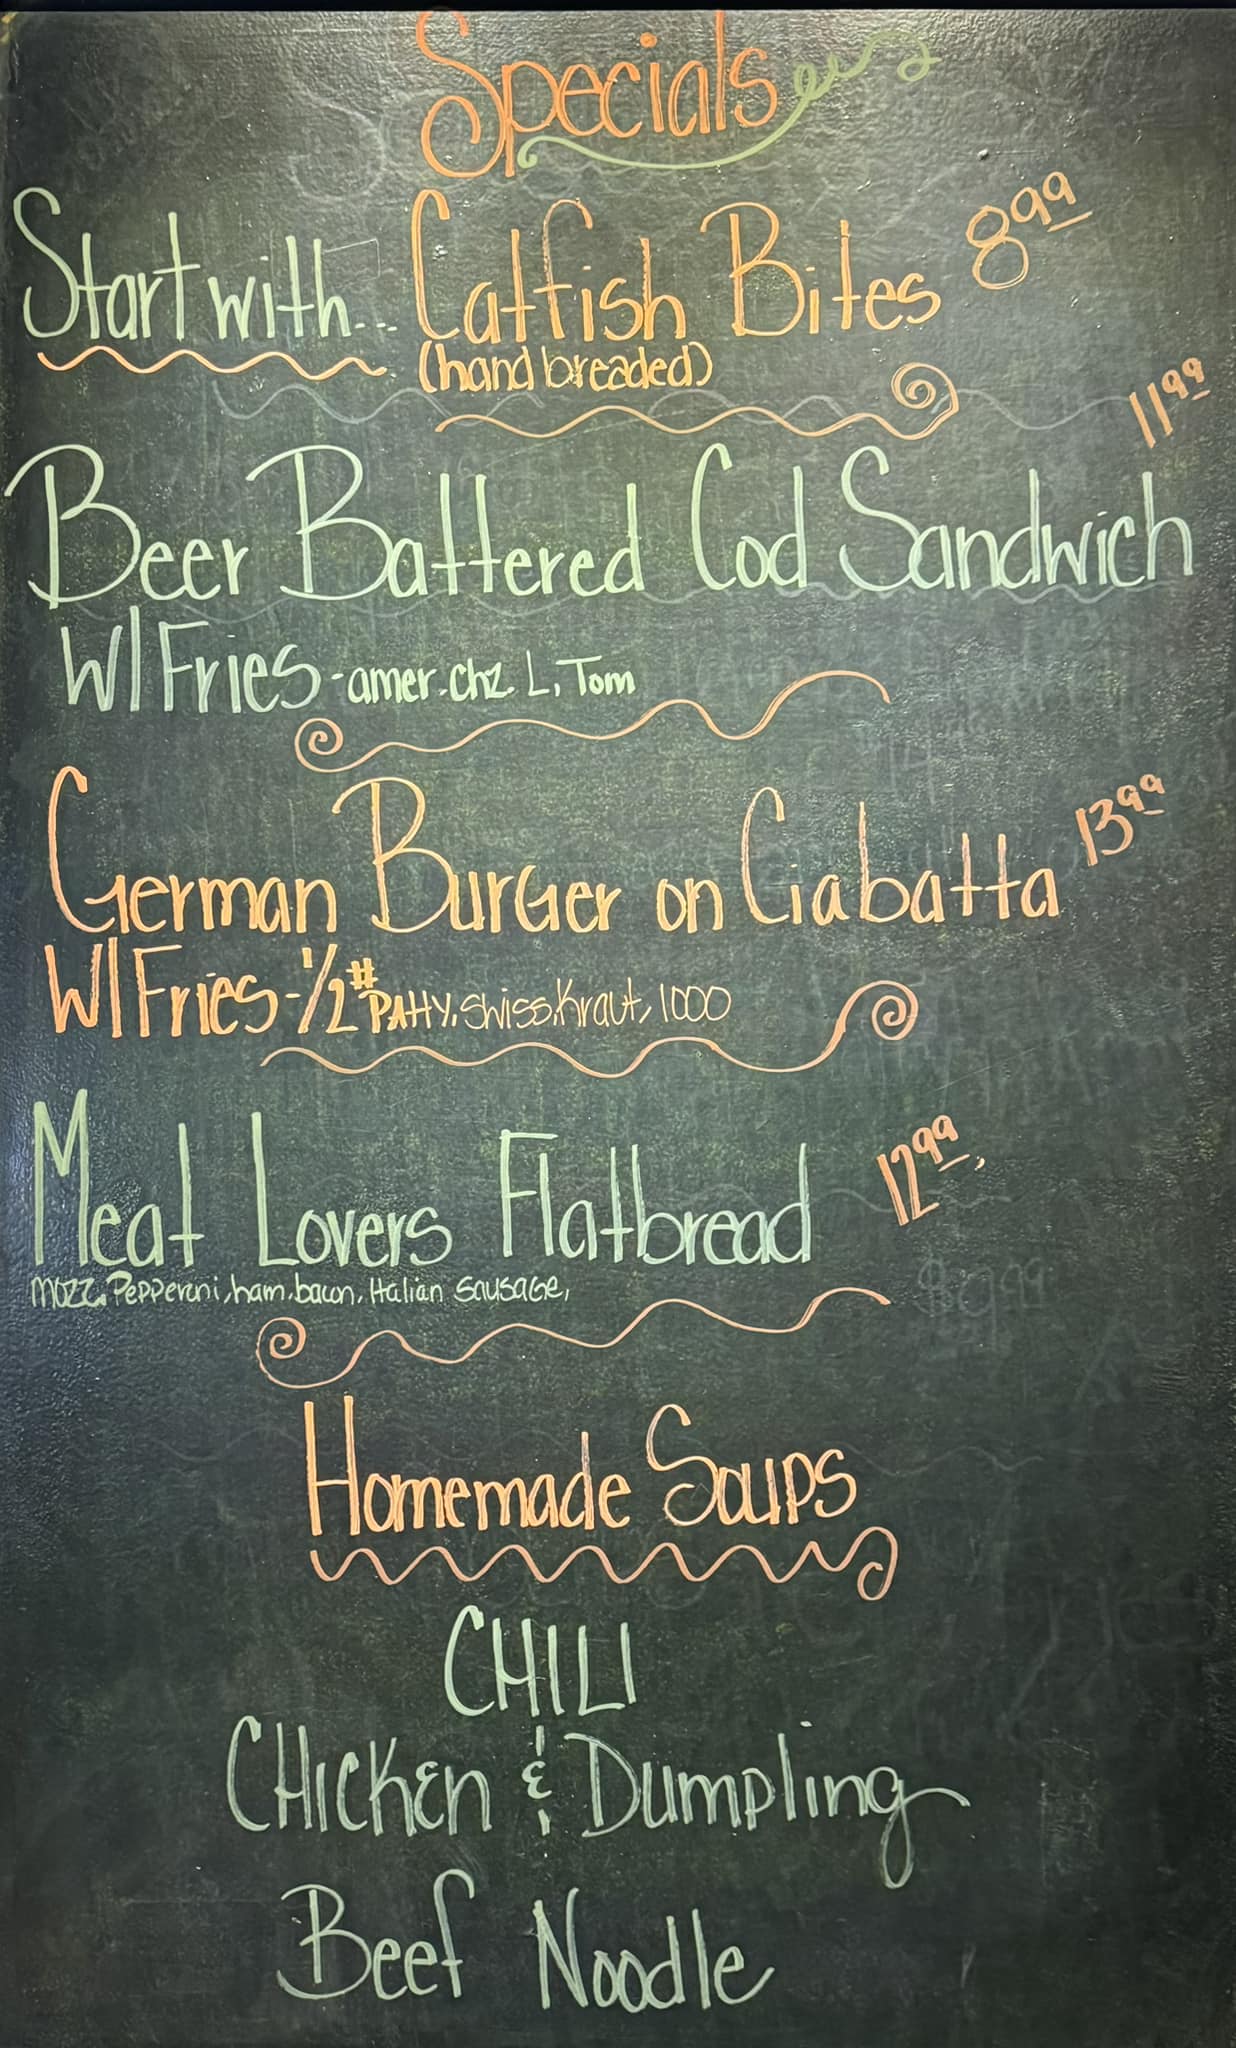 Specials
Start with... Catfish Bites 8.99
(hand breaded)
11.99
Beer Battered Cod Sandwich
W/Fries-amer.chz. L, Tom
German Burger on Ciabatta 13.99
W/Fries-1/2# Patty, Swiss, Kraut, 1000
Meat Lovers Flatbread 12.99
Mozz, Pepperoni, ham, bacon, Italian Sausage,
$9.99
Homemade Soups
CHILI
CHicken & Dumpling
Beef Noodle